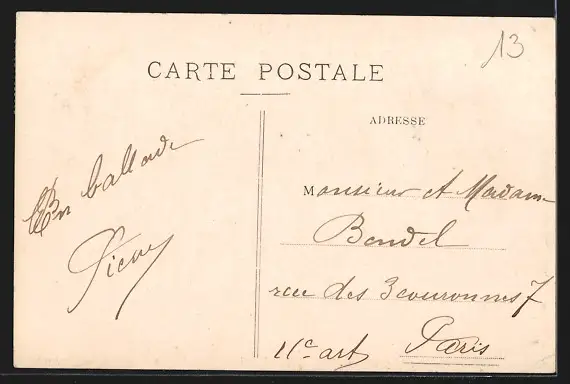 13
CARTE POSTALE
ADRESSE
En ballade
Monsieur et Madame
Bendel
rue des 3 couronnes 7
11e art Paris